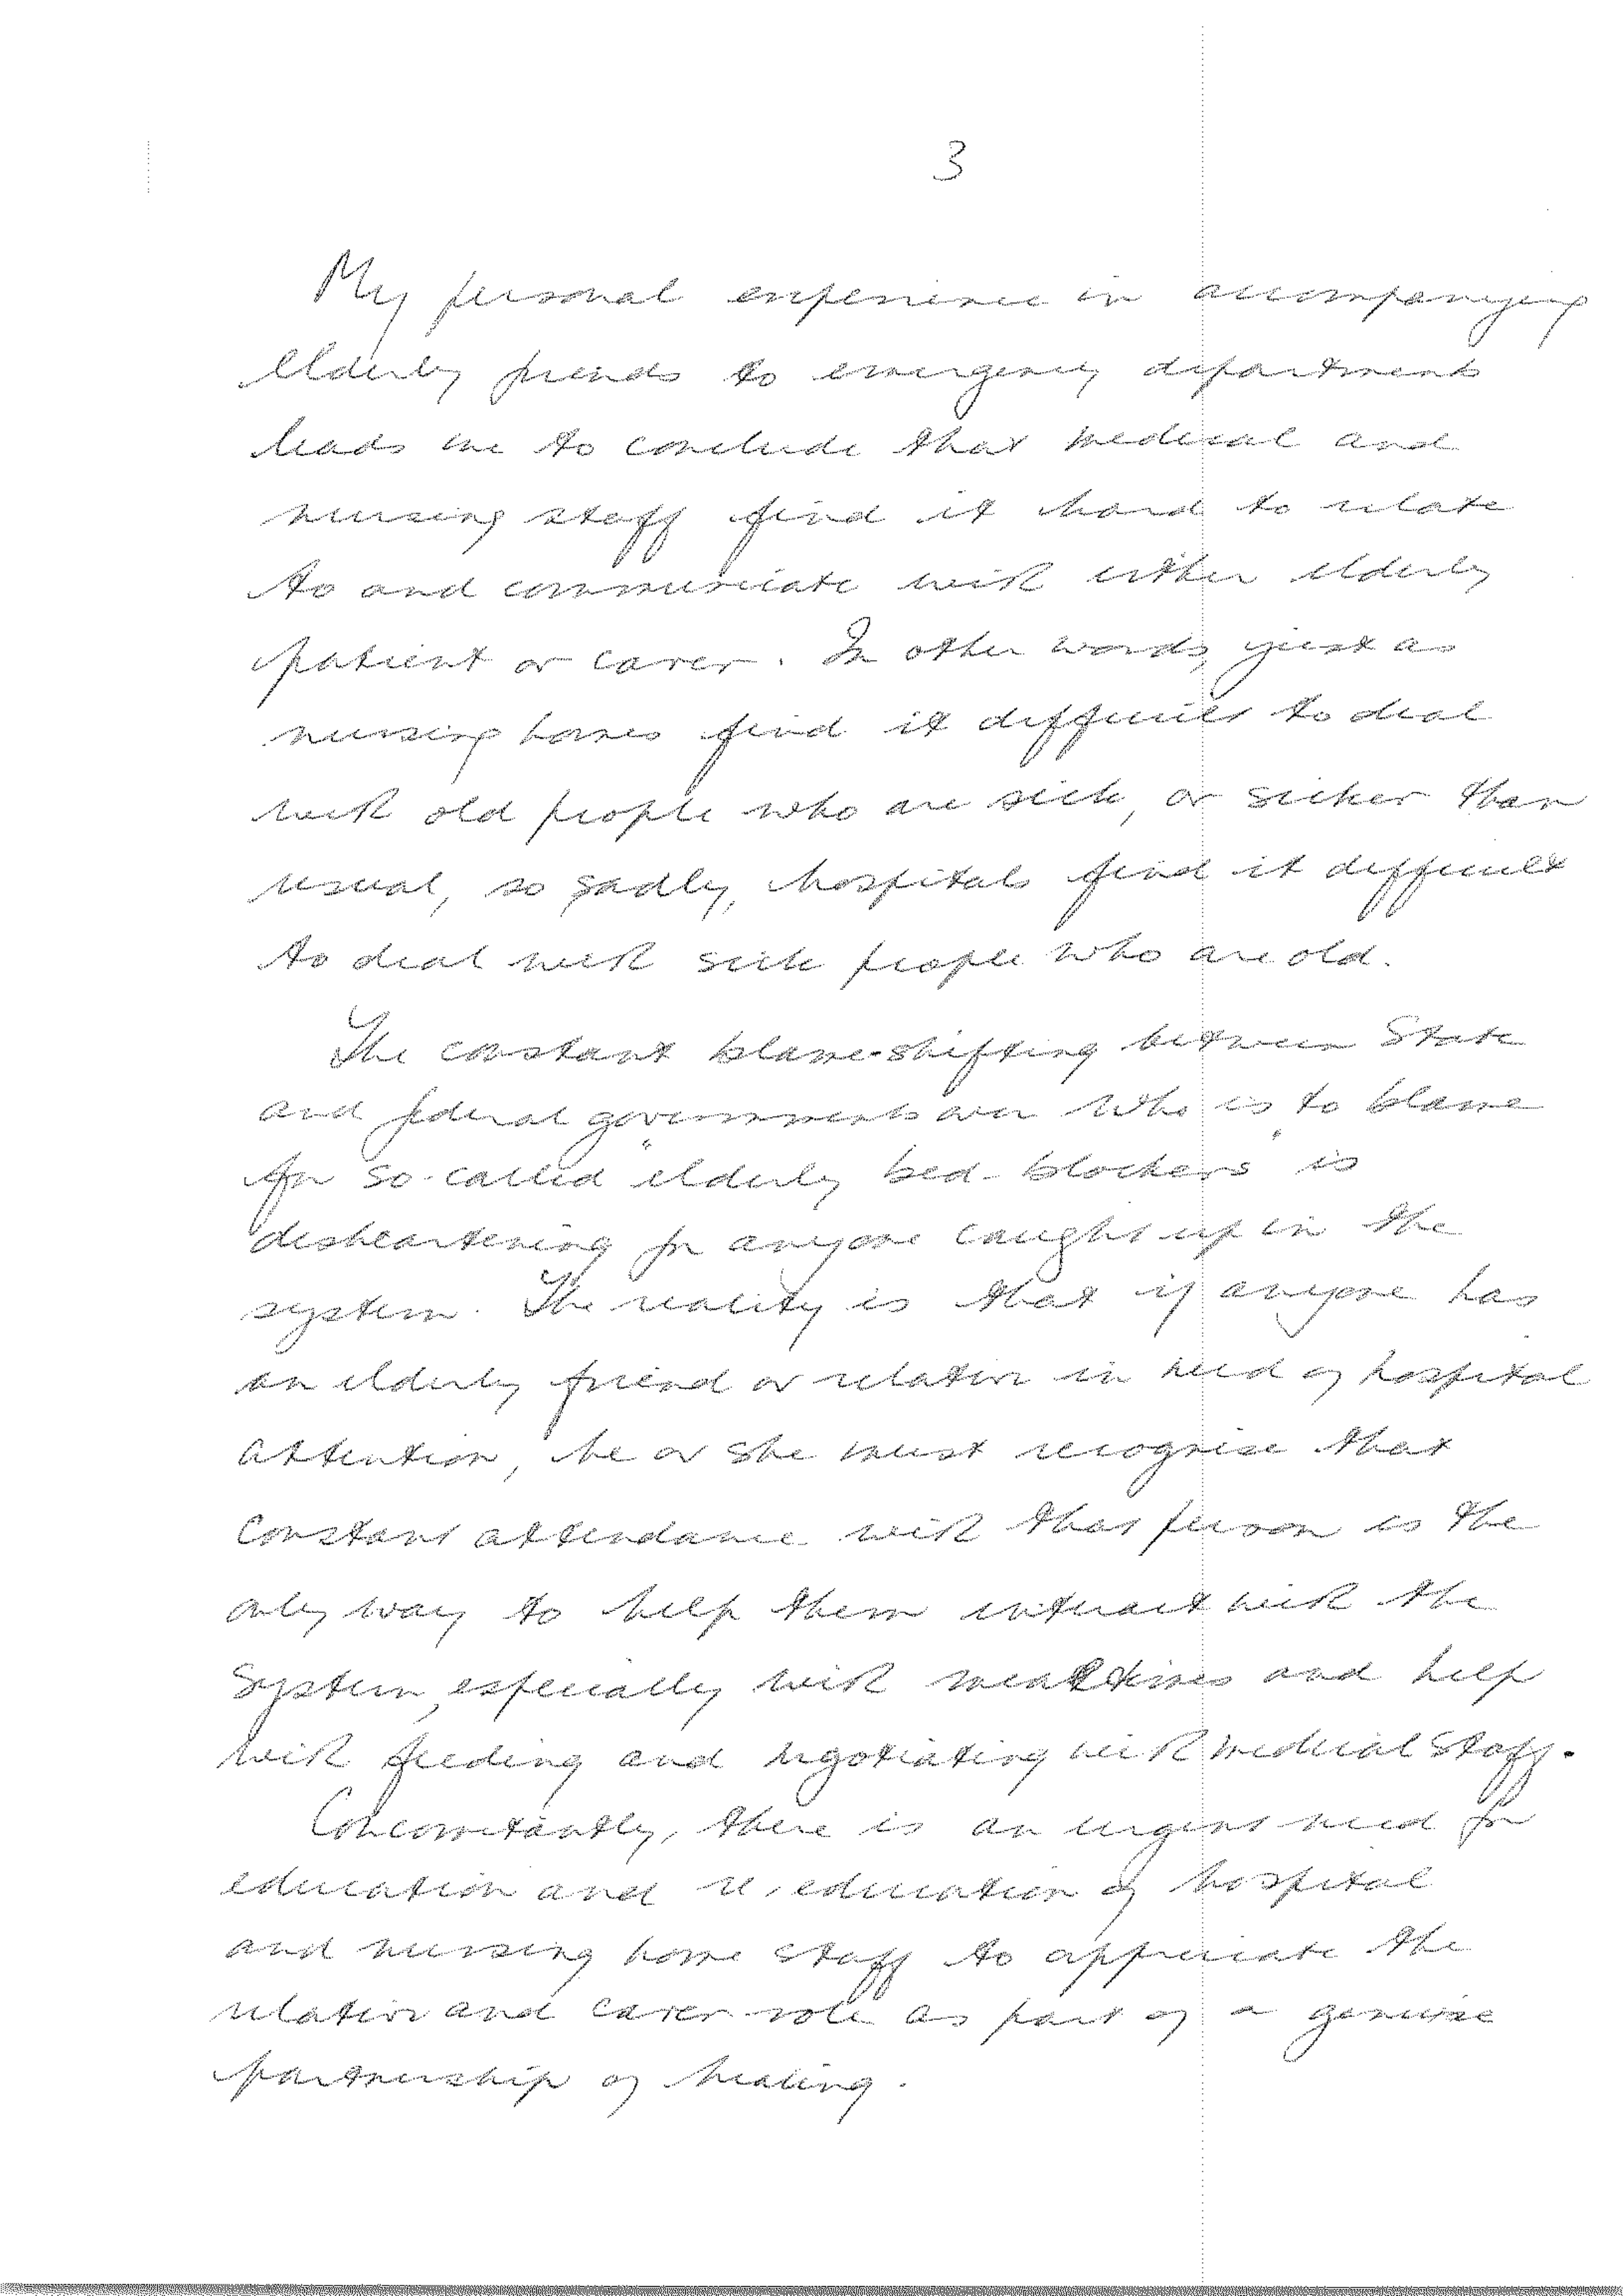 3
My personal experience in accompanying
elderly friends to emergency departments
leads me to conclude that medical and
nursing staff find it hard to relate
to and communicate with either elderly
patient or carer. In other words, just as
nursing homes find it difficult to deal
with old people who are sick, or sicker than
usual, so sadly, hospitals find it difficult
to deal with sick people who are old.
The constant blame-shifting between State
and federal governments over who is to blame
for so-called "elderly bed-blockers" is
disheartening for anyone caught up in the
system. The reality is that if anyone has
an elderly friend or relative in need of hospital
attention, he or she must recognise that
constant attendance with that person is the
only way to help them interact with the
system, especially with mealtimes and help
with feeding and negotiating with medical staff.
Concomitantly, there is an urgent need for
education and re-education of hospital
and nursing home staff to appreciate the
relative and carer role as part of a genuine
partnership of healing.